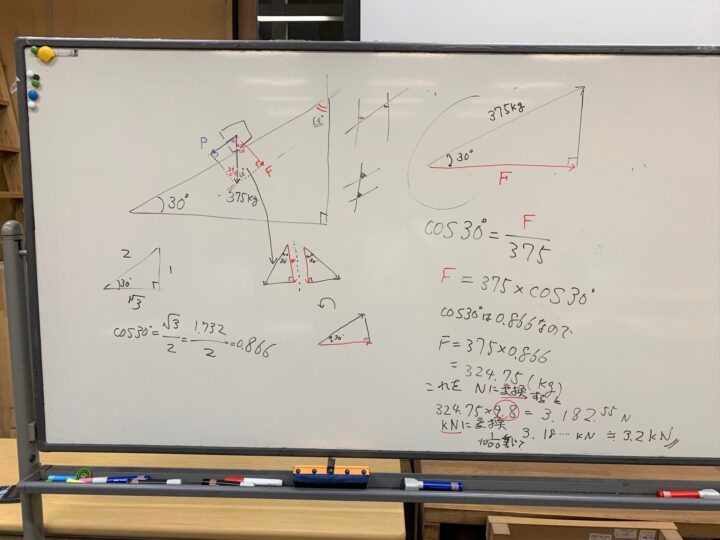 60°
P
F
375kg
30°
2
1
30°
√3
cos30°=√3/2=1.732/2=0.866
30°
375kg
30°
F
cos30°=F/375
F=375×cos30°
cos30°は0.866なので
F=375×0.866
=324.75(kg)
これを Nに変換すると
324.75×9.8=3.182.55 N
kNに変換
3.18…… kN ≒3.2kN